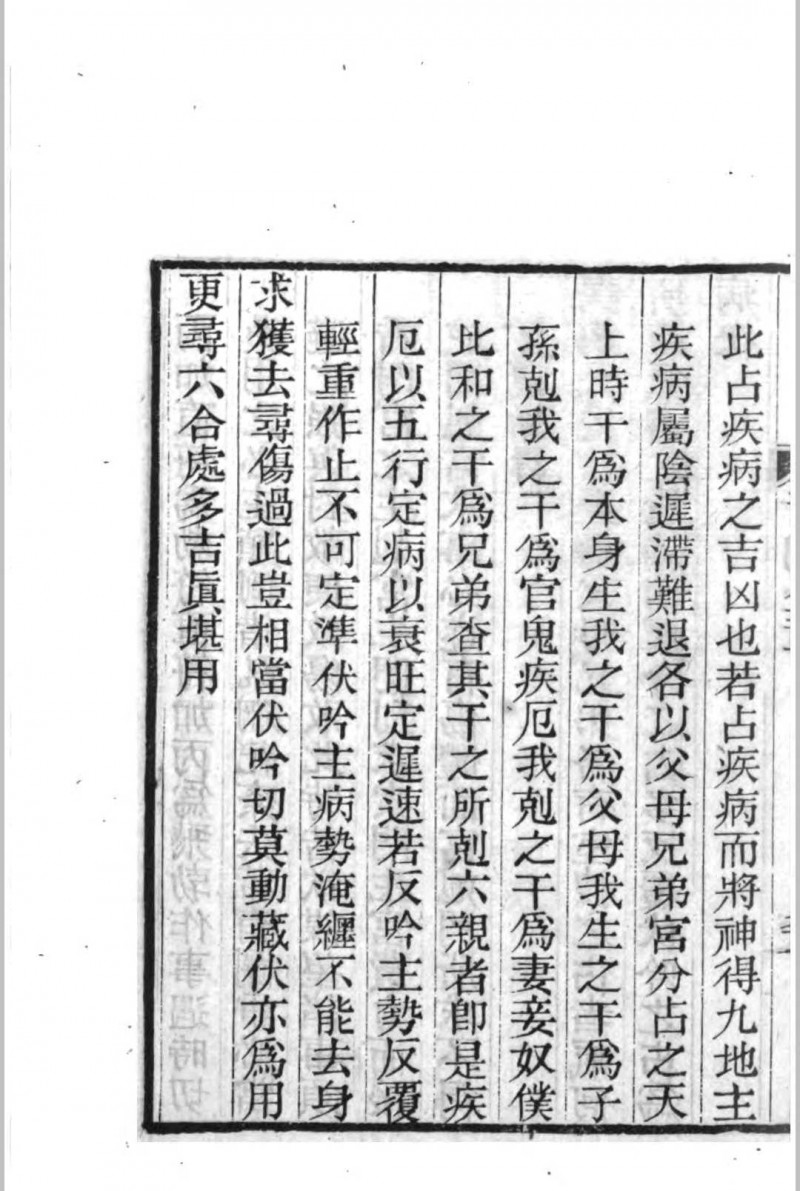 此占疾病之吉凶也若占疾病而將神得九地主
疾病屬陰遲滯難退各以父母兄弟宮分占之天
上時干爲本身生我之干爲父母我生之干爲子
孫剋我之干爲官鬼疾厄我剋之干爲妻妾奴僕
比和之干爲兄弟查其干之所剋六親者卽是疾
厄以五行定病以衰旺定遲速若反吟主勢反覆
輕重作止不可定準伏吟主病勢淹纏不能去身
求獲去尋傷過此豈相當伏吟切莫動藏伏亦爲用
更尋六合處多吉眞堪用